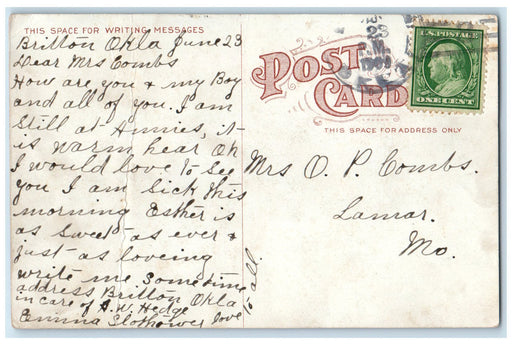 THIS SPACE FOR WRITING MESSAGES
Britton Okla June 23
Dear Mrs Combs
How are you & my Boy
and all of you. I am
Still at Annies, it
is warm hear Oh
I would love to See
you I am Sick this
morning Esther is
as Sweet as ever &
just as loveing
write me Sometime
address Britton Okla
in care of A. W. Hedge
Emma Slothower love
to all.
POST
CARD
THIS SPACE FOR ADDRESS ONLY
U.S. POSTAGE
ONE CENT
Mrs O. P. Combs.
Lamar.
Mo.